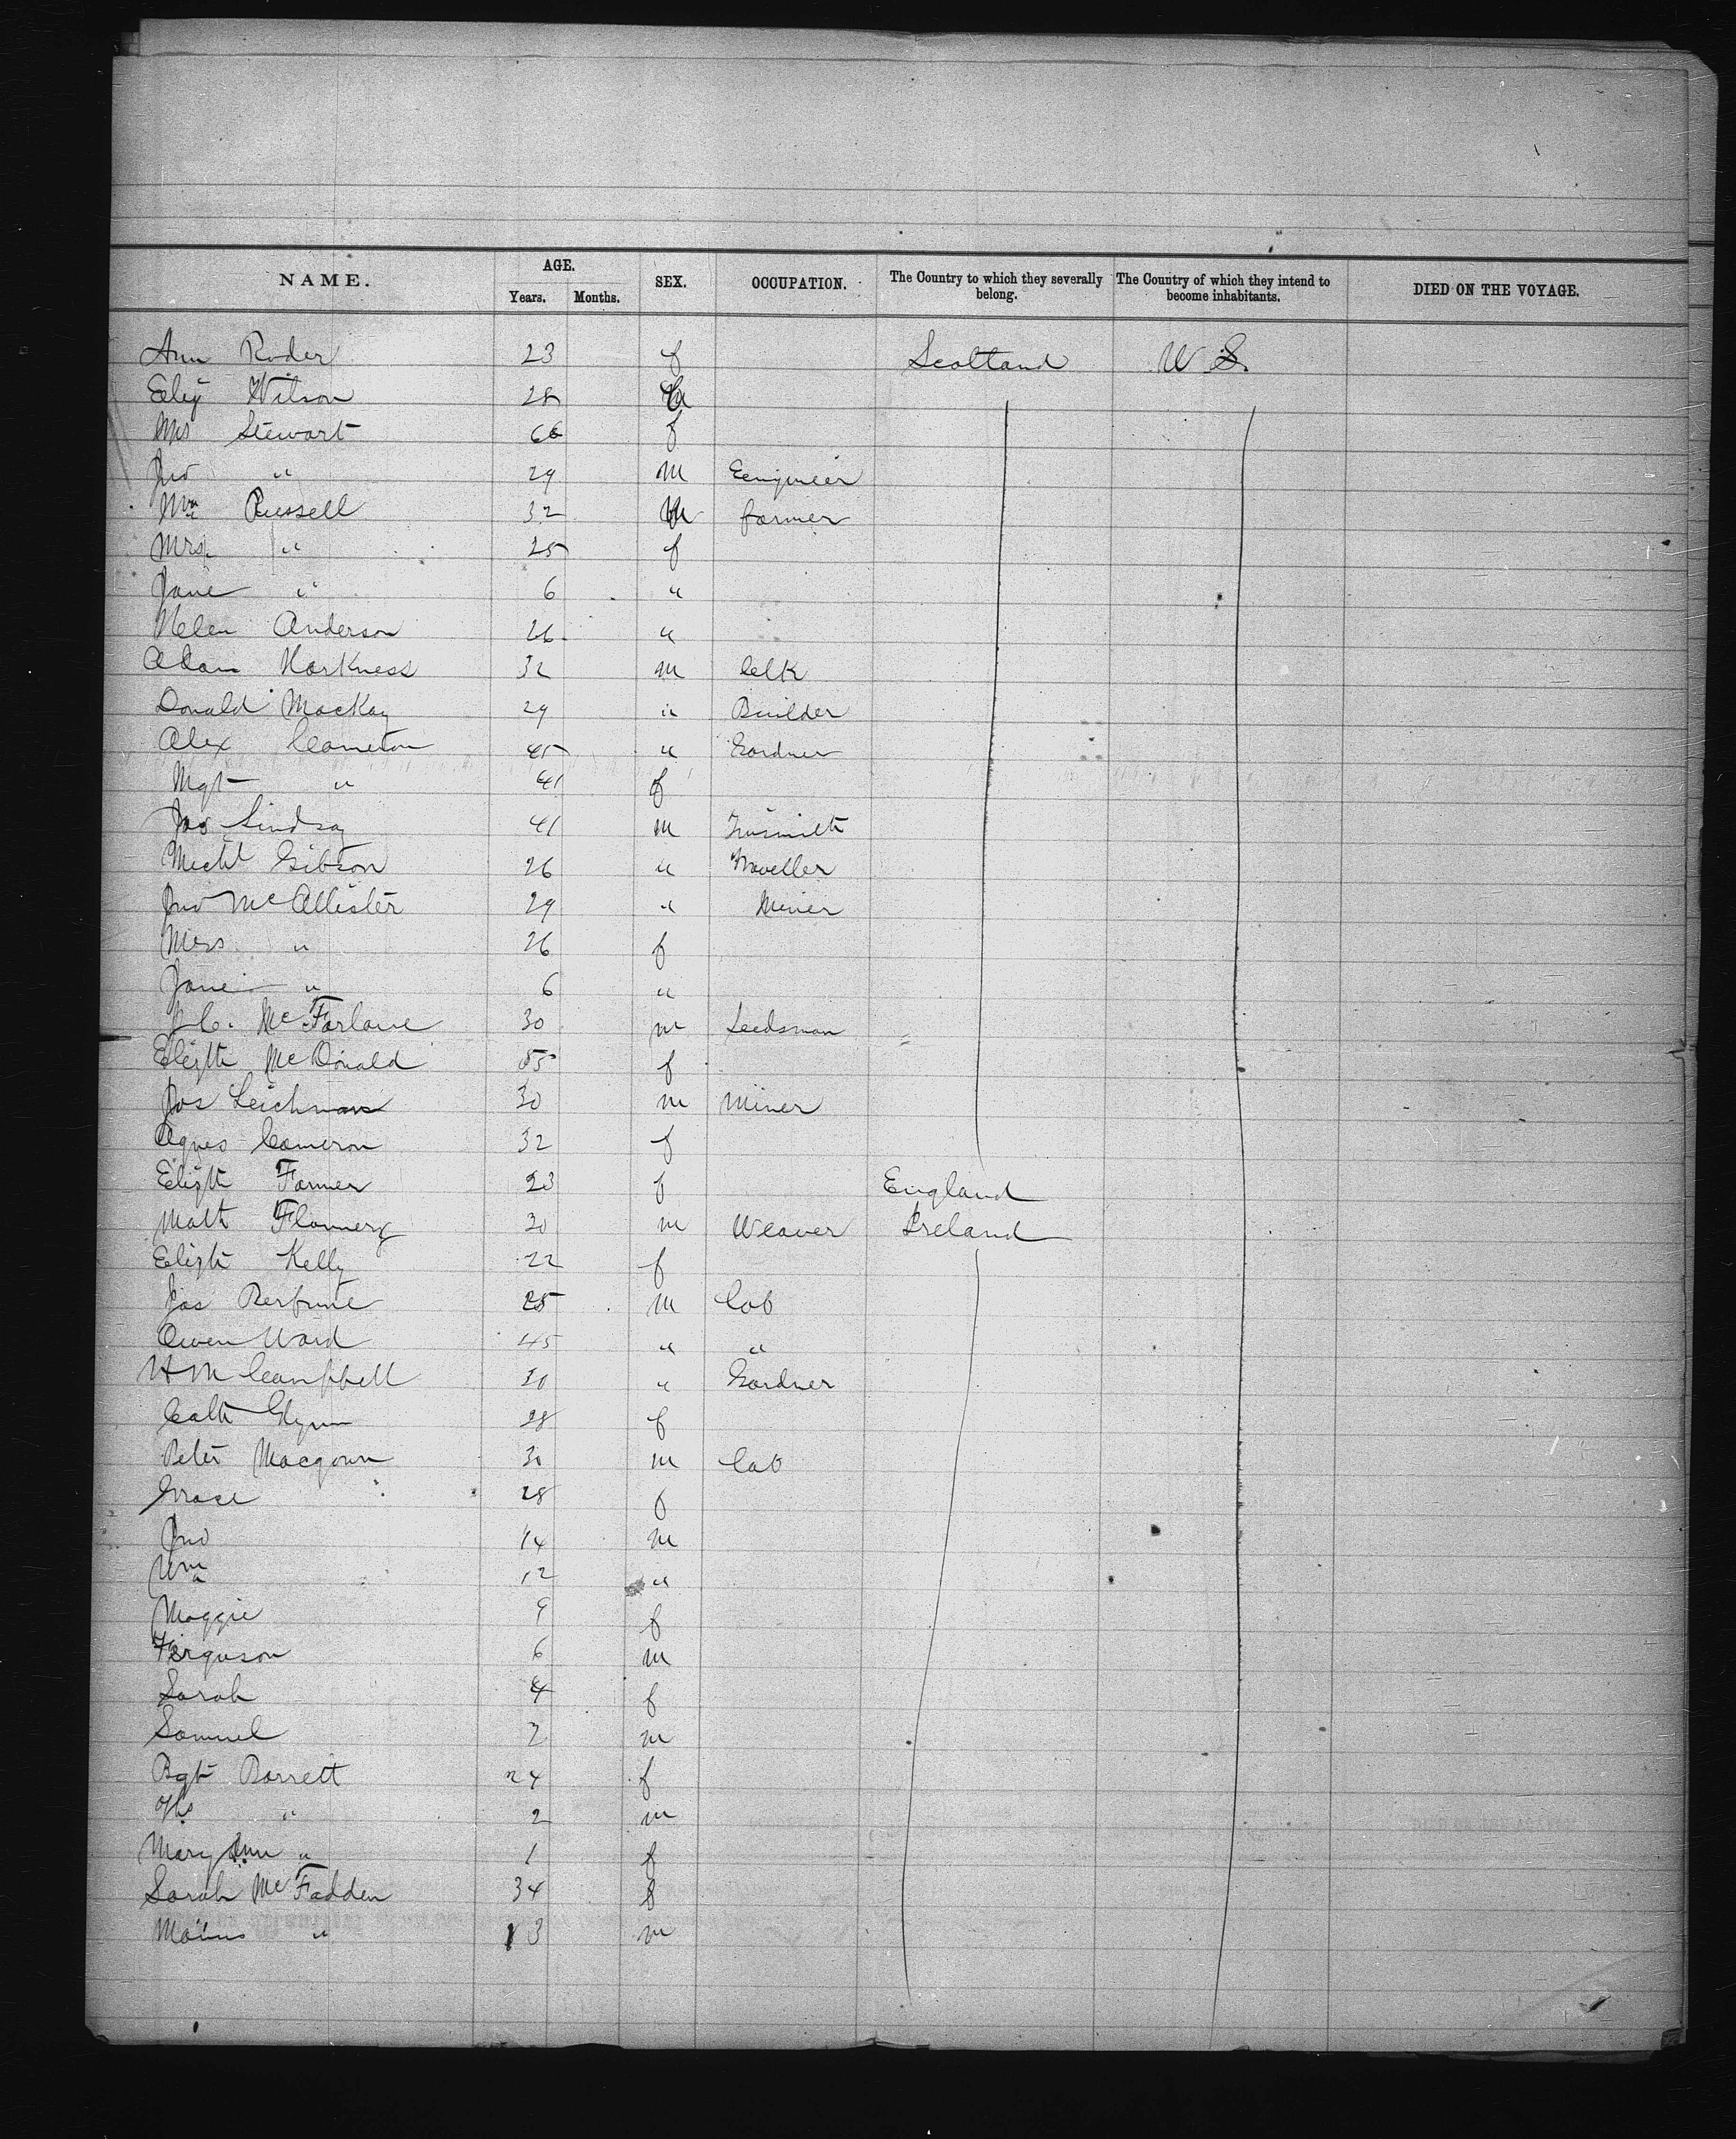 NAME. AGE. SEX. OCCUPATION. The Country to which they severally belong. The Country of which they intend to become inhabitants. DIED ON THE VOYAGE.
Years. Months.
Ann Roder 23 f Scotland U S.
Wilson 28
Mrs Stewart 66 f
Jno " 29 m Eengineer
Wm Russell 32 m farmer
Mrs. " 25 f
Jane " 6 "
Helen Anderson 26 "
Adam Harkness 32 m Celk
Donald MacKay 29 " Builder
Alex Cameron 45 " Gardner
Mgt " 41 f
Jas Lindsay 41 m Tinsmith
Michl Gibson 26 " Traveller
Jno McAllister 29 " Miner
Mrs. " 26 f
Jane " 6 "
J. C. McFarlane 30 m Seedsman
Elizth McDonald 55 f
Jas Leichman 30 m Miner
Agnes Cameron 32 f
Elizth Farmer 23 f England
Matt Flannery 30 m Weaver Ireland
Elizth Kelly 22 f
Jas 25 m Lab
Owen Ward 45 " "
H M Campbell 30 " Gardner
Cath Glynn 28 f
Peter Macgown 30 m Lab
Grace 28 f
Jno 14 m
Wm 12 "
Maggie 9 f
Ferguson 6 m
Sarah 4 f
Samuel 2 m
Bgt Barrett 24 f
Ths " 2 m
Mary Ann " 1 f
Sarah McFadden 34 f
" 13 m